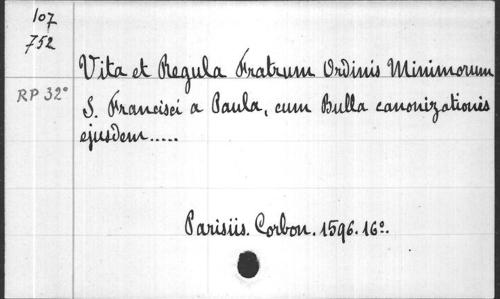 107
752
Vita et Regula Fratrum Ordinis Minimorum
RP 32°
S. Francisci a Paula, cum Bulla canonizationis
ejusdem.....
Parisiis. Corbon. 1596. 16°.